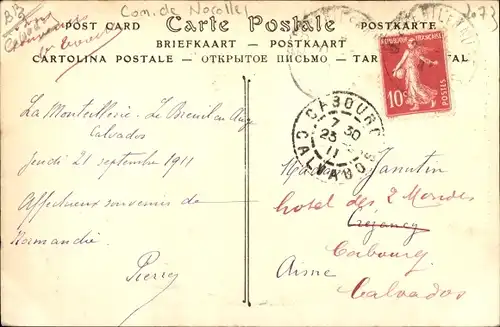 Com. de
POST CARD Carte Postale POSTKARTE
BRIEFKAART - POSTKAART
CARTOLINA POSTALE - ОТКРЫТОЕ ПИСЬМО - TAR
REPUBLIQUE FRANÇAISE
10c POSTES
CABOURG
7 30
23
11
CALVADOS
La Monteillerie. Le Breuil en Auge
Calvados
Jeudi 21 septembre 1911
Affectueux souvenirs de
Normandie.
Pierre
Janutin
hotel des 2 Mondes
Crézancy
Cabourg
Aisne
Calvados